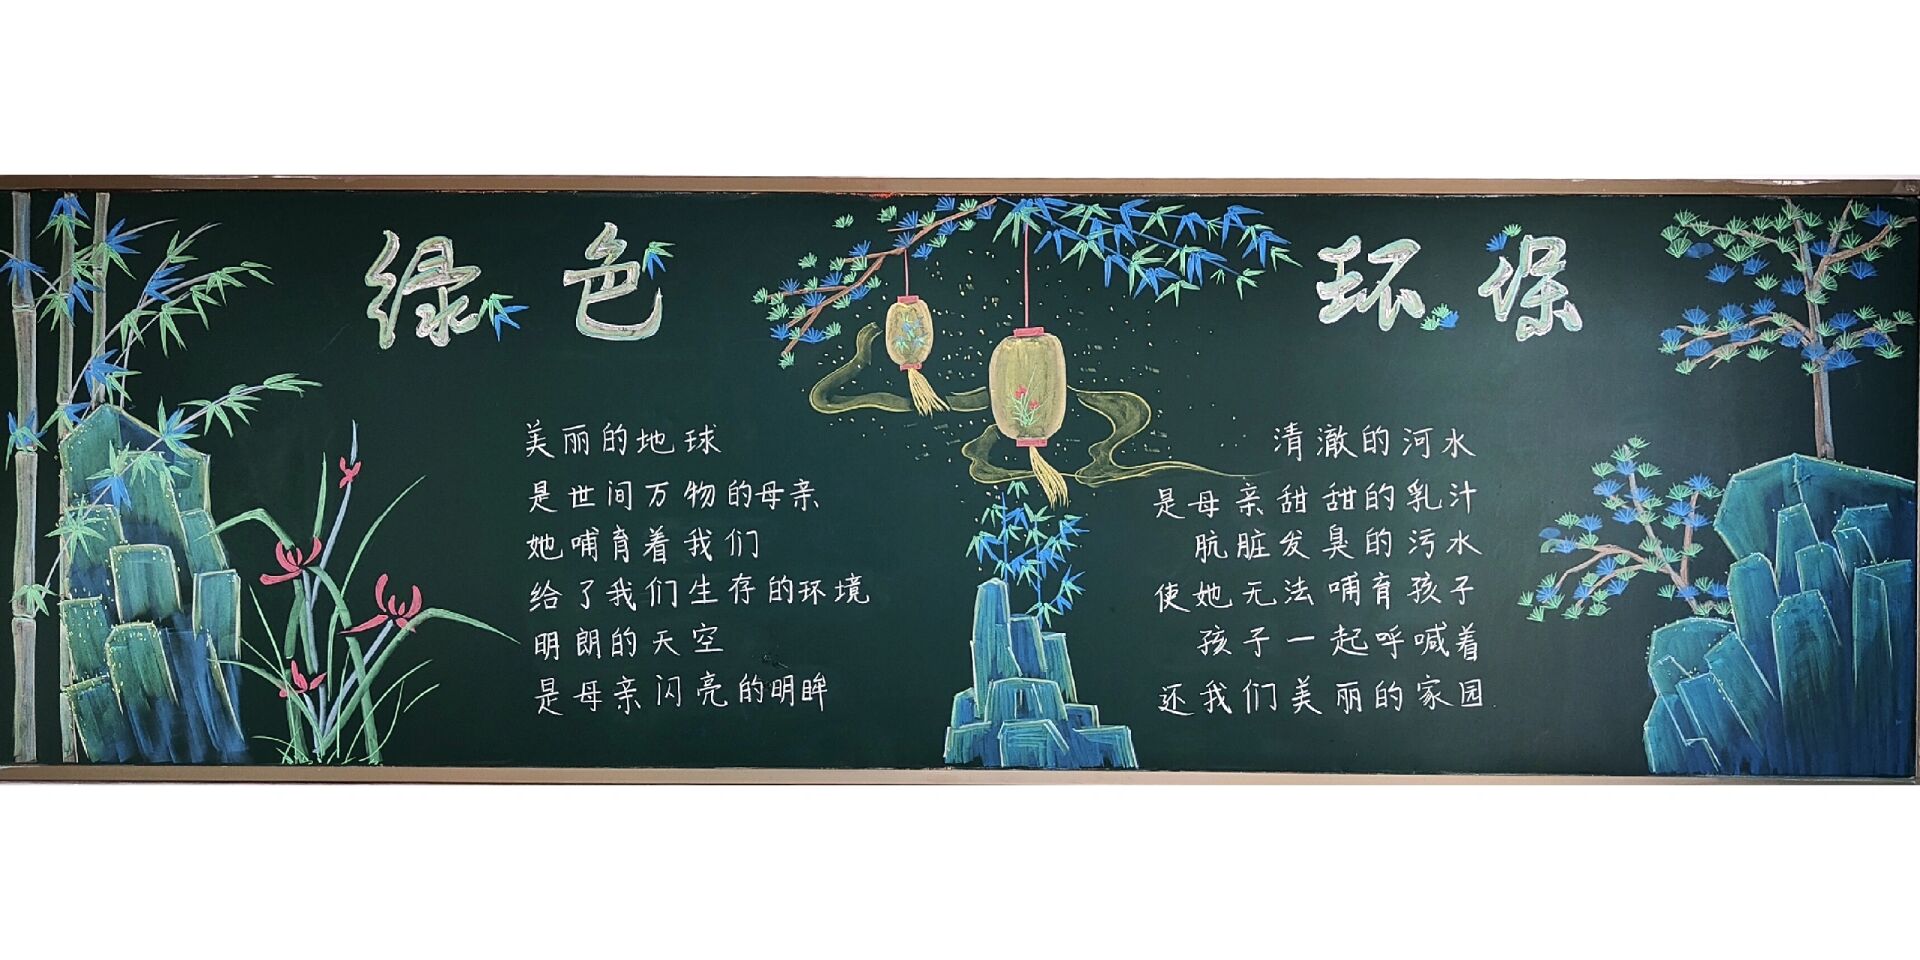 绿色
环保
美丽的地球
是世间万物的母亲
她哺育着我们
给了我们生存的环境
明朗的天空
是母亲闪亮的明眸
清澈的河水
是母亲甜甜的乳汁
肮脏发臭的污水
使她无法哺育孩子
孩子一起呼喊着
还我们美丽的家园